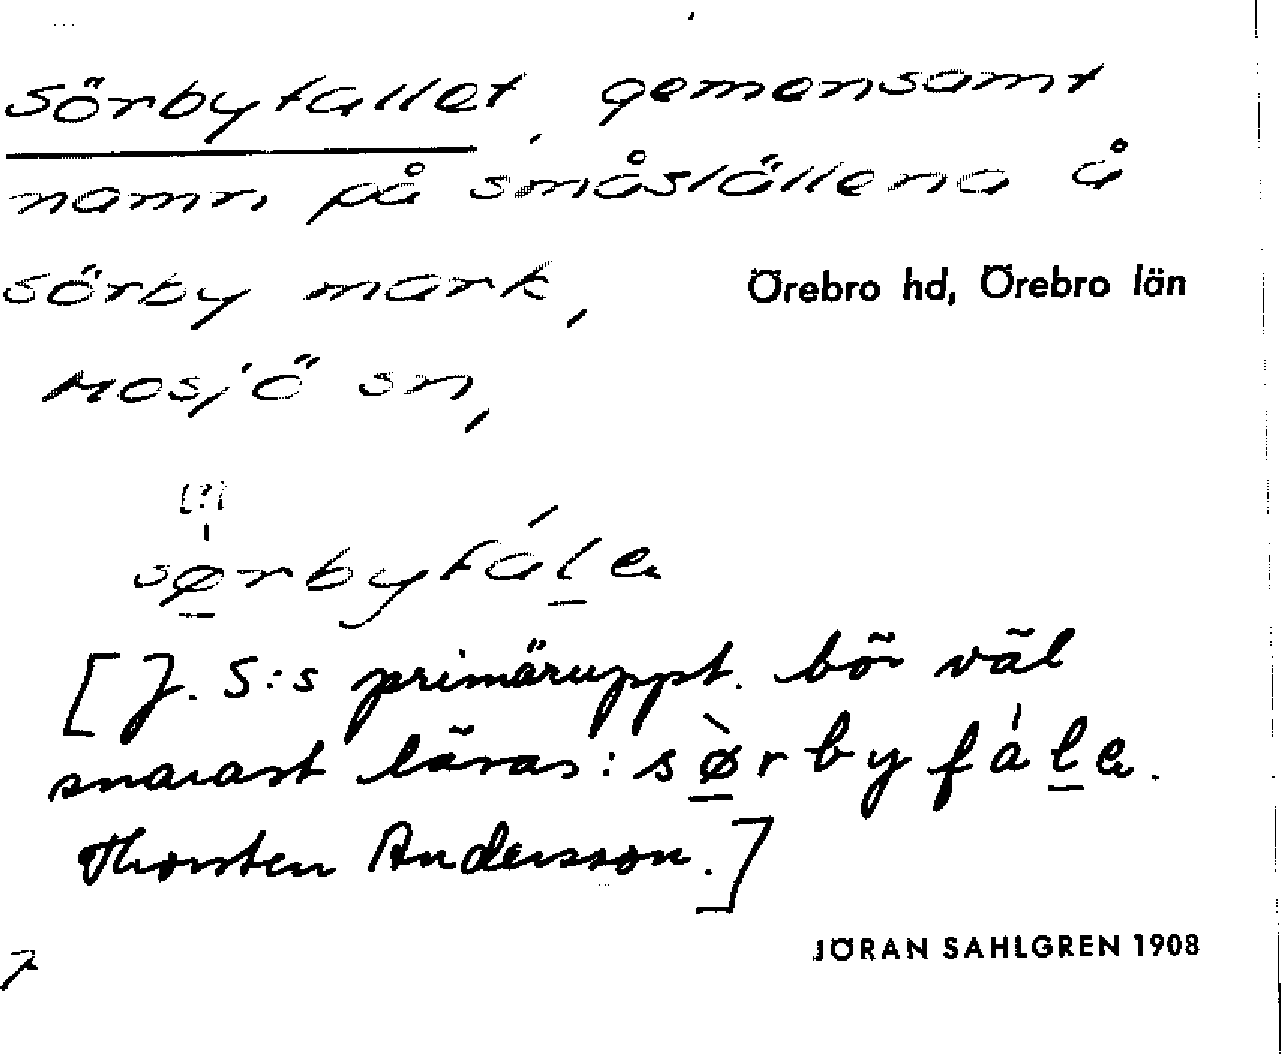 Sörbyfallet, gemensamt
namn på småställena å
Sörby mark, Örebro hd, Örebro län
Mosjö sn,
[?]
sø̲rbyfál̲e
[J. S:s primäruppt. bör väl
snarast läsas: sø̲̀rbyfál̲e.
Thorsten Andersson.]
JÖRAN SAHLGREN 1908